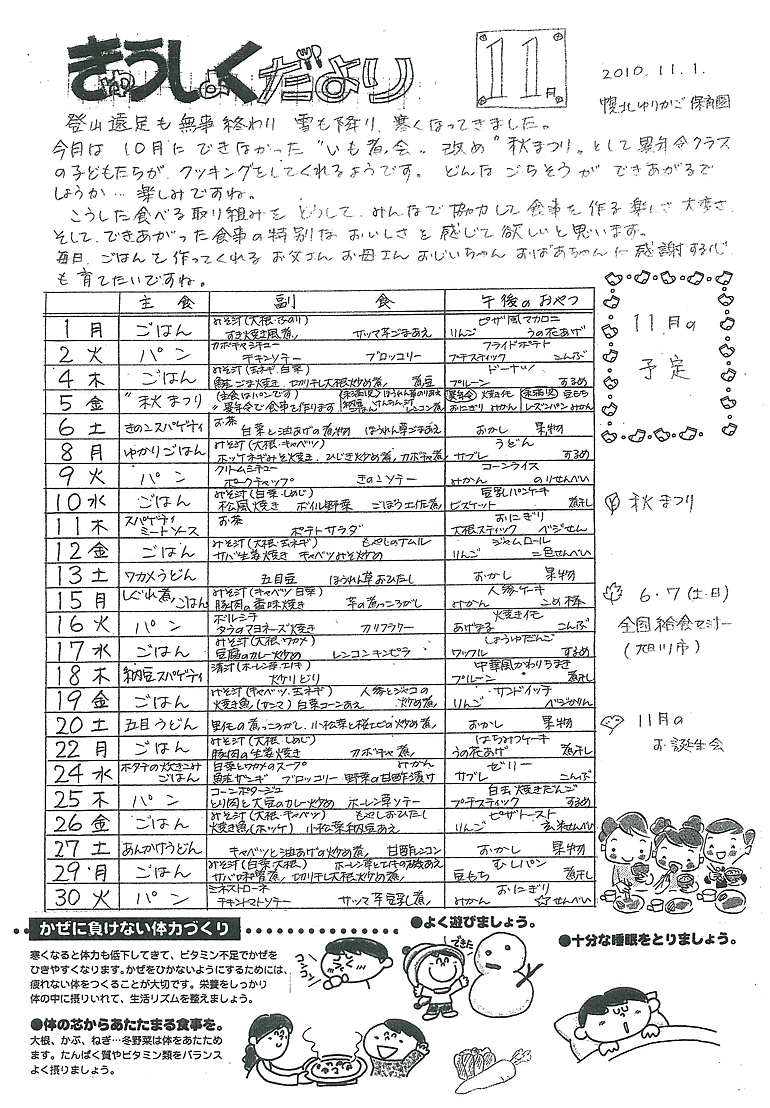 きゅうしょくだより
11月
2010.11.1.
幌北ゆりかご保育園
登山遠足も無事終わり 雪も降り、寒くなってきました。
今月は 10月に できなかった "いも煮会" 改め "秋まつり" として異年令クラス
の子どもたちが、クッキングをしてくれるようです。 どんな ごちそうが できあがるで
しょうか… 楽しみですね。
こうした食べる取り組みを とうして、みんなで 協力して 食事を 作る 楽しさ 大変さ、
そして、できあがった 食事の 特別な おいしさ を 感じて 欲しいと 思います。
毎日、ごはんを 作ってくれる お父さん お母さん おじいちゃん おばあちゃん に 感謝する心
も 育てたいですね。
主食 副食 午後のおやつ
1 月 ごはん みそ汁(大根・ふのり) すき焼き風煮 サツマ芋ごまあえ ピザ風マカロニ りんご うの花あげ
2 火 パン カボチャシチュー チキンソテー ブロッコリー フライドポテト プチスティック こんぶ
4 木 ごはん みそ汁(玉ネギ、白菜) 鮭ごま焼き、切り干し大根炒め煮、煮豆 ドーナツ プルーン するめ
5 金 "秋まつり" (主食はパンです) 異年令で食事を作ります
6 土 きのこスパゲティ お茶 白菜と油あげの煮物 ほうれん草ごまあえ おかし 果物
8 月 ゆかりごはん みそ汁(大根・キャベツ) ホッケネギみそ焼き、ひじき炒め煮、カボチャ煮 うどん サブレ するめ
9 火 パン クリームシチュー ポークチャップ きのこソテー コーンライス みかん のりせんべい
10 水 ごはん みそ汁(白菜・しめじ) 松風焼き ボイル野菜 ごぼう土佐煮 豆乳パンケーキ ビスケット 煮干し
11 木 スパゲティミートソース お茶 ポテトサラダ おにぎり 大根スティック ベジせん
12 金 ごはん みそ汁(大根・玉ネギ) もやしのナムル サバ生姜焼き キャベツみそ炒め ジャムロール りんご 二色せんべい
13 土 ワカメうどん 五目豆 ほうれん草おひたし おかし 果物
15 月 しぐれ煮ごはん みそ汁(キャベツ 白菜) 豚肉の香味焼き 芋の煮っころがし 人参ケーキ みかん こめ棒
16 火 パン ボルシチ タラのマヨネーズ焼き カリフラワー 焼きイモ あげまる こんぶ
17 水 ごはん みそ汁(大根・ワカメ) 豆腐のカレー炒め レンコンキンピラ しょうゆだんご ワッフル するめ
18 木 納豆スパゲティ 清汁(ホーレン草・エノキ) 炒りどり 中華風かわりちまき プルーン 煮干し
19 金 ごはん みそ汁(キャベツ、玉ネギ) 人参とジャコの炒め煮 焼き魚(サンマ) 白菜コーンあえ サンドイッチ りんご ベジかりん
20 土 五目うどん 里芋の煮っころがし、小松菜と桜エビの炒め煮 おかし 果物
22 月 ごはん みそ汁(大根、しめじ) 豚肉の生姜焼き カボチャ煮 はちみつケーキ うの花あげ 煮干し
24 水 ホタテの炊きこみごはん 白菜とワカメのスープ みかん 鮭ザンギ ブロッコリー 野菜の甘酢漬け ゼリー サブレ こんぶ
25 木 パン コーンポタージュ とり肉と大豆のカレー炒め ホーレン草ソテー 白玉焼きだんご プチスティック するめ
26 金 ごはん みそ汁(大根・キャベツ) もやしおひたし 焼き魚(ホッケ) 小松菜納豆あえ ピザトースト りんご 玄米せんべい
27 土 あんかけうどん キャベツと油あげの炒め煮、 甘酢レンコン おかし 果物
29 月 ごはん みそ汁(白菜・大根) ホーレン草とエノキの磯あえ サバの和風煮、切り干し大根炒め煮、 むしパン 豆もち 煮干し
30 火 パン ミネストローネ チキントマトソテー サツマ芋豆乳煮 おにぎり みかん ☆せんべい
11月の
予定
秋まつり
6・7(土・日)
全国給食セミナー
(旭川市)
11月の
お誕生会
かぜに負けない体力づくり
寒くなると体力も低下してきて、ビタミン不足でかぜを
ひきやすくなります。かぜをひかないようにするためには、
疲れない体をつくることが大切です。栄養をしっかり
体の中に摂りいれて、生活リズムを整えましょう。
●体の芯からあたたまる食事を。
大根、かぶ、ねぎ…冬野菜は体をあたため
ます。たんぱく質やビタミン類をバランス
よく摂りましょう。
コンコン
●よく遊びましょう。
できた
●十分な睡眠をとりましょう。